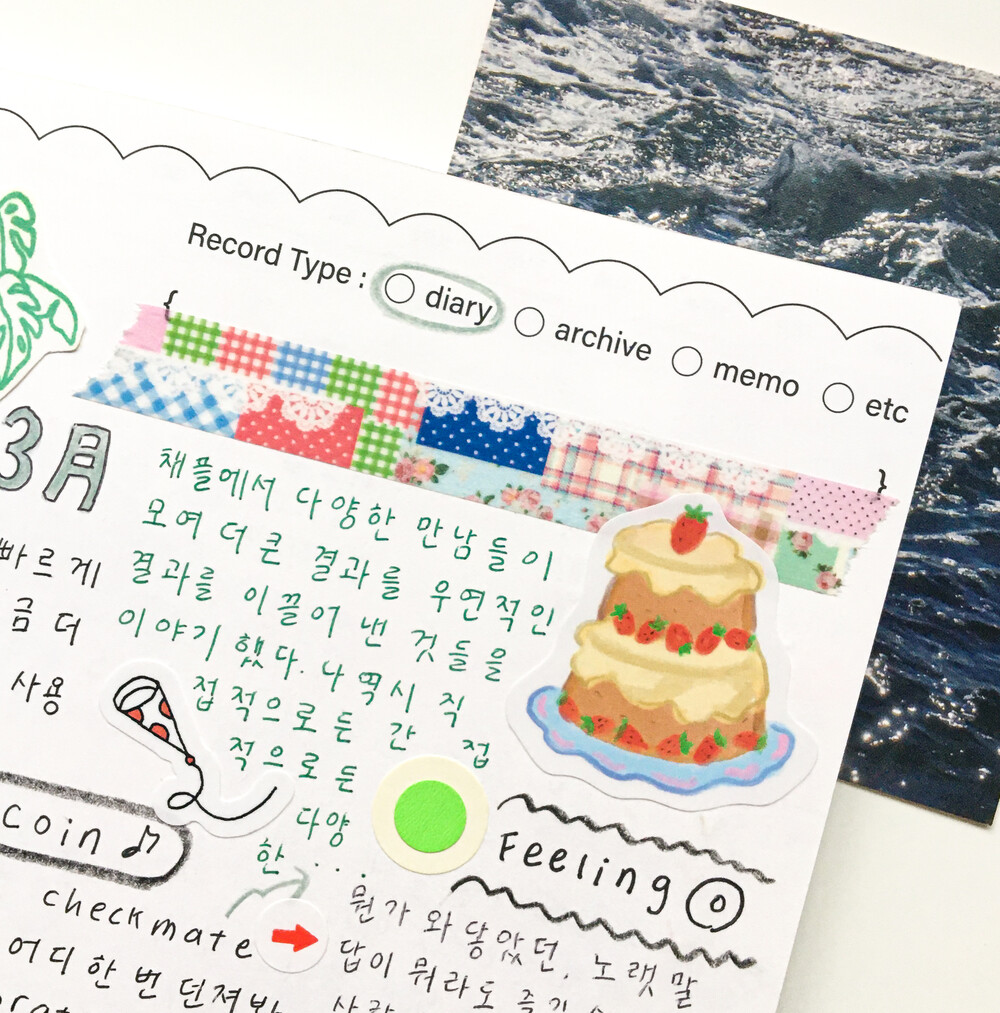 Record Type : diary archive memo etc
{
}
3月
채플에서 다양한 만남들이
모여 더 큰 결과를 우연적인
결과를 이끌어 낸 것들을
이야기 했다. 나 역시 직
접적으로든 간접
적으로든
다양
한...
빠르게
금 더
사용
coin
checkmate
어디 한 번 던져봐
Feeling
뭔가 와 닿았던, 노랫말
답이 뭐라도